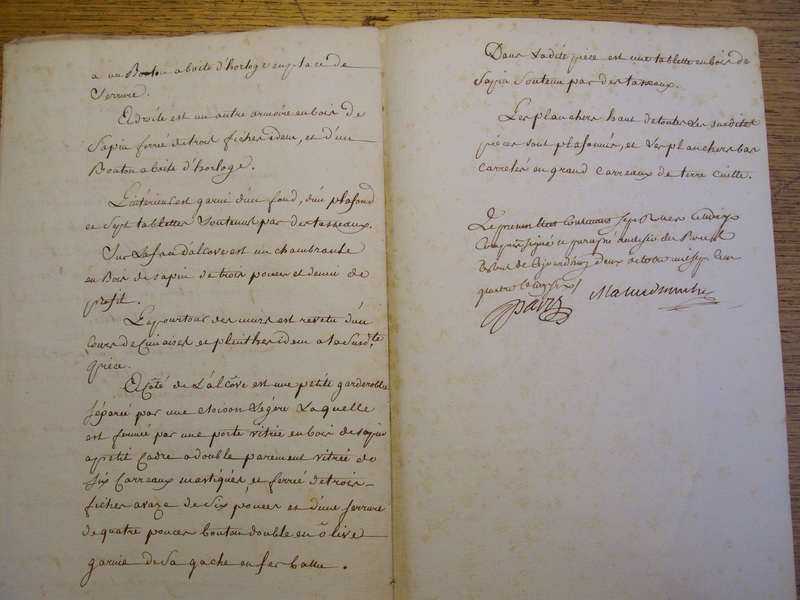 a un Bouton a boite d'horloge en place de
Serrure.
A droite est un autre armoire en bois de
Sapin ferré de trois fiches idem, et d'un
Bouton a boite d'horloge.
L'intérieur est garni d'un fond, d'un plafond
et Sept tablettes Soutenus par des tasseaux.
Sur Le fond d'alcove est un chambranle
en Bois de sapin de trois pouces et demi de
profil.
Le pourtour des murs est revetu d'un
Cours de Cimaises et plinthes idem a la Susd.te
pièce.
A Côté de L'alcôve est une petite garderobbe
séparée par une cloison Légère Laquelle
est fermée par une porte vitrée en bois de sapin
a petit Cadre a double parement vitrée de
six Carreaux mastiqués et ferrée de trois
fiches a vaze de Six pouces et d'une serrure
de quatre pouces bouton double en ôlive
garnie de Sa gache en fer battu.
Dans Ladite pièce est une tablette en bois de
Sapin Soutenu par des tasseaux.
Les planchers haut de toutes Les susdites
pièces sont plafonnés, et Les planchers bas
carrelés en grand carreaux de terre cuitte.
Le présent Etat Contenant sept
signé et paraphé au desir du
de Cejourd'huy deux octobre mil sept cent
quatre